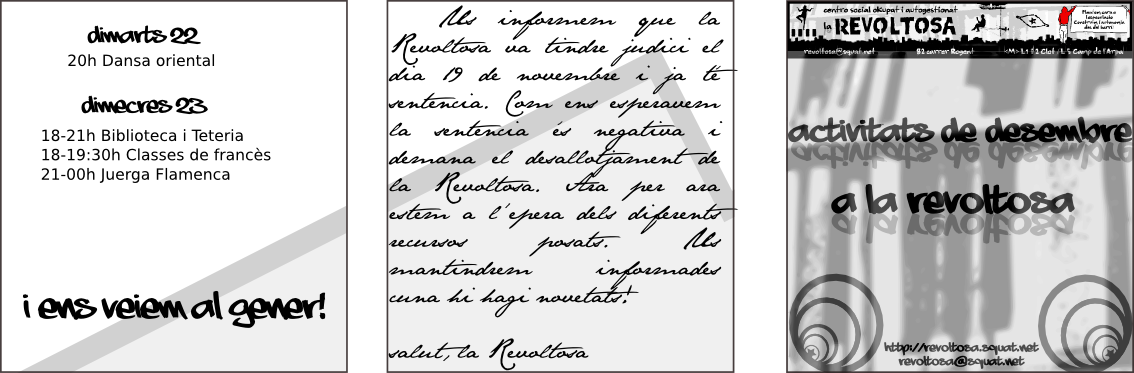 dimarts 22
20h Dansa oriental
dimecres 23
18-21h Biblioteca i Teteria
18-19:30h Classes de francès
21-00h Juerga Flamenca
i ens veiem al gener!
Us informem que la
Revoltosa va tindre judici el
dia 19 de novembre i ja té
sentencia. Com ens esperavem
la sentencia és negativa i
demana el desallotjament de
la Revoltosa. Ara per ara
estem a l'epera dels diferents
recursos posats. Us
mantindrem informades
cuna hi hagi novetats!
salut, la Revoltosa
centro social okupat i autogestionat
la REVOLTOSA
revoltosa@squat.net 82 carrer Rogent <M> L1 / 2 Clot / L 5 Camp de l'Arpa
activitats de desembre
a la revoltosa
http://revoltosa.squat.net
revoltosa@squat.net